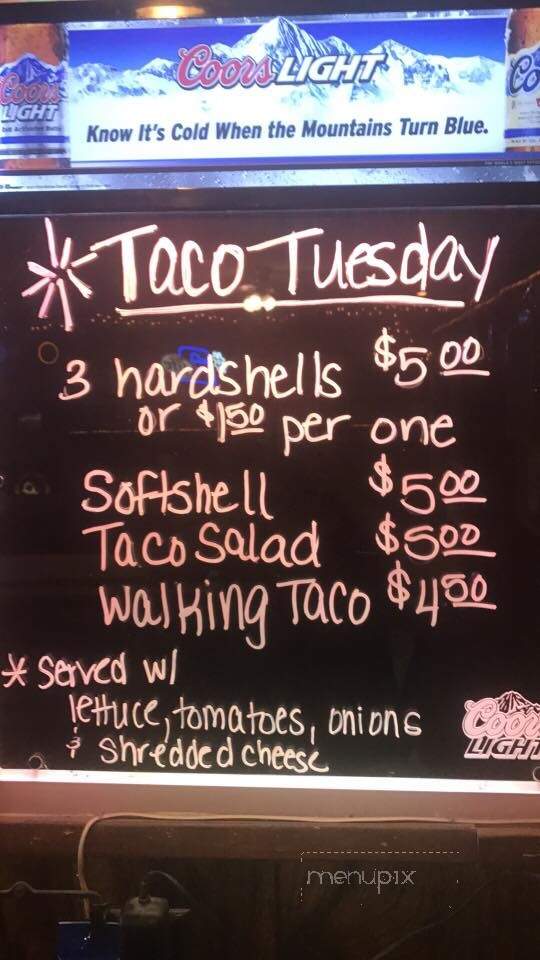 Coors LIGHT
Coors
LIGHT
Know It's Cold When the Mountains Turn Blue.
* Taco Tuesday
3 hardshells $5.00
or $1.50 per one
Softshell $5.00
Taco Salad $5.00
Walking Taco $4.50
* Served w/
lettuce, tomatoes, onions
& Shredded cheese
Coors
LIGHT
menupix